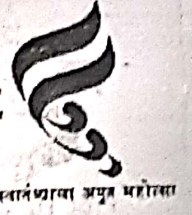 स्वातंत्र्याचा अमृत महोत्सव